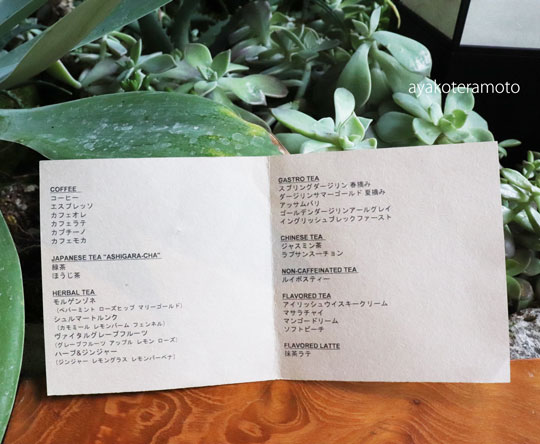 ayakoteramoto
COFFEE
コーヒー
エスプレッソ
カフェオレ
カフェラテ
カプチーノ
カフェモカ
JAPANESE TEA "ASHIGARA-CHA"
緑茶
ほうじ茶
HERBAL TEA
モルゲンゾネ
(ペパーミント ローズヒップ マリーゴールド)
シュルマートルンク
(カモミール レモンバーム フェンネル)
ヴァイタルグレープフルーツ
(グレープフルーツ アップル レモン ローズ)
ハーブ&ジンジャー
(ジンジャー レモングラス レモンバーベナ)
GASTRO TEA
スプリングダージリン 春摘み
ダージリンサマーゴールド 夏摘み
アッサムバリ
ゴールデンダージリンアールグレイ
イングリッシュブレックファースト
CHINESE TEA
ジャスミン茶
ラプサンスーチョン
NON-CAFFEINATED TEA
ルイボスティー
FLAVORED TEA
アイリッシュウイスキークリーム
マサラチャイ
マンゴードリーム
ソフトピーチ
FLAVORED LATTE
抹茶ラテ